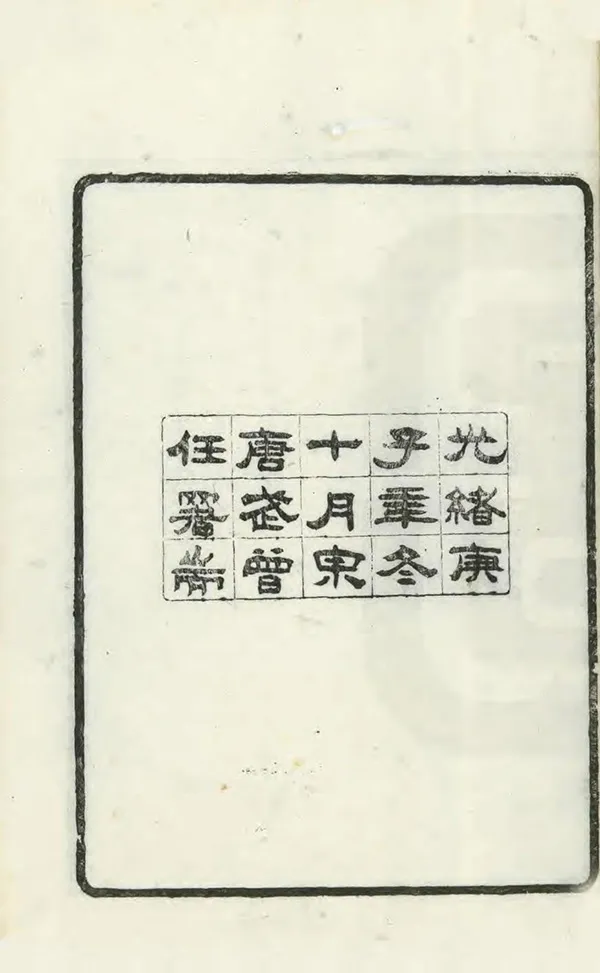 光緒庚
子年冬
十月泉
唐武曾
任署耑